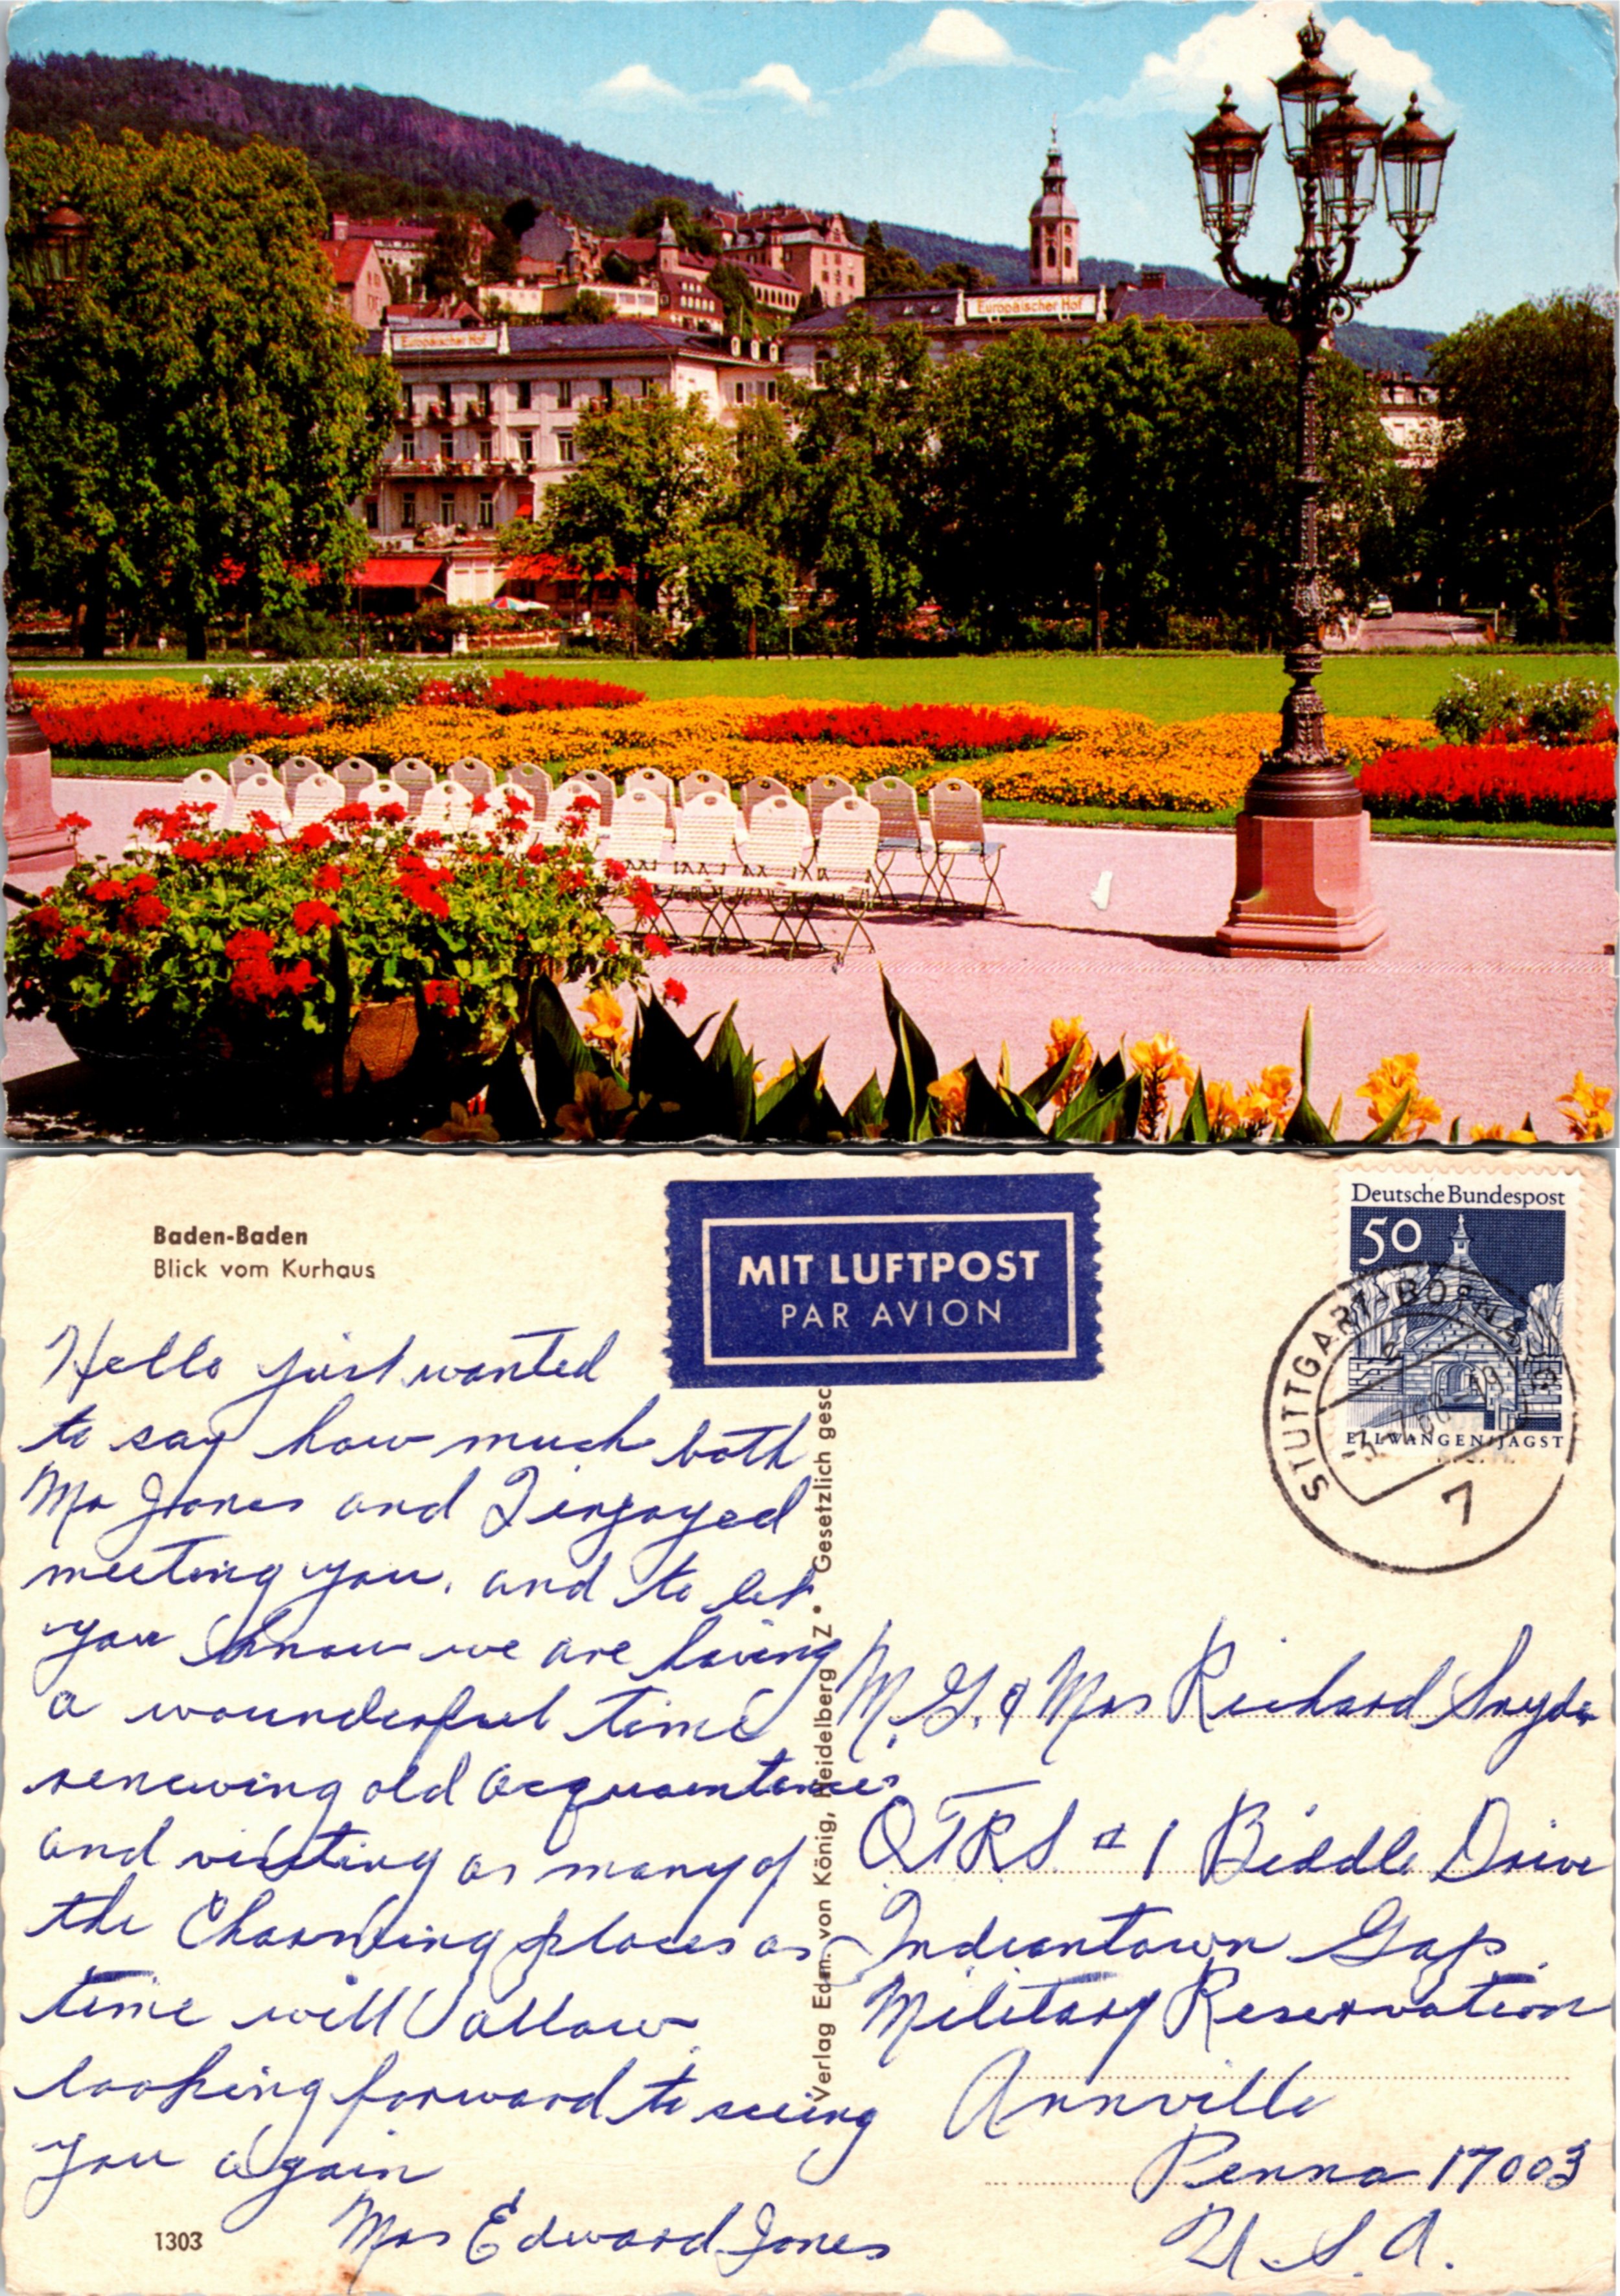 Europäischer Hof
Europäischer Hof
Baden-Baden
Blick vom Kurhaus
MIT LUFTPOST
PAR AVION
Deutsche Bundespost
50
ELLWANGEN/JAGST
STUTTGART-BOTNANG
1
Hello just wanted
to say how much both
Mr Jones and I enjoyed
meeting you. and to let
you know we are having
a wounderful time
renewing old acquaintances
and visiting as many of
the Charming places as
time will allow.
looking forward to seeing
you again
Mrs Edward Jones
1303
Verlag Edm. von König, Heidelberg Z • Gesetzlich gesc
M.G. & Mrs Richard Snyder
QTRS #1 Biddle Drive
Indiantown Gap.
Military Reservation
Annville
Penna 17003
U.S.A.